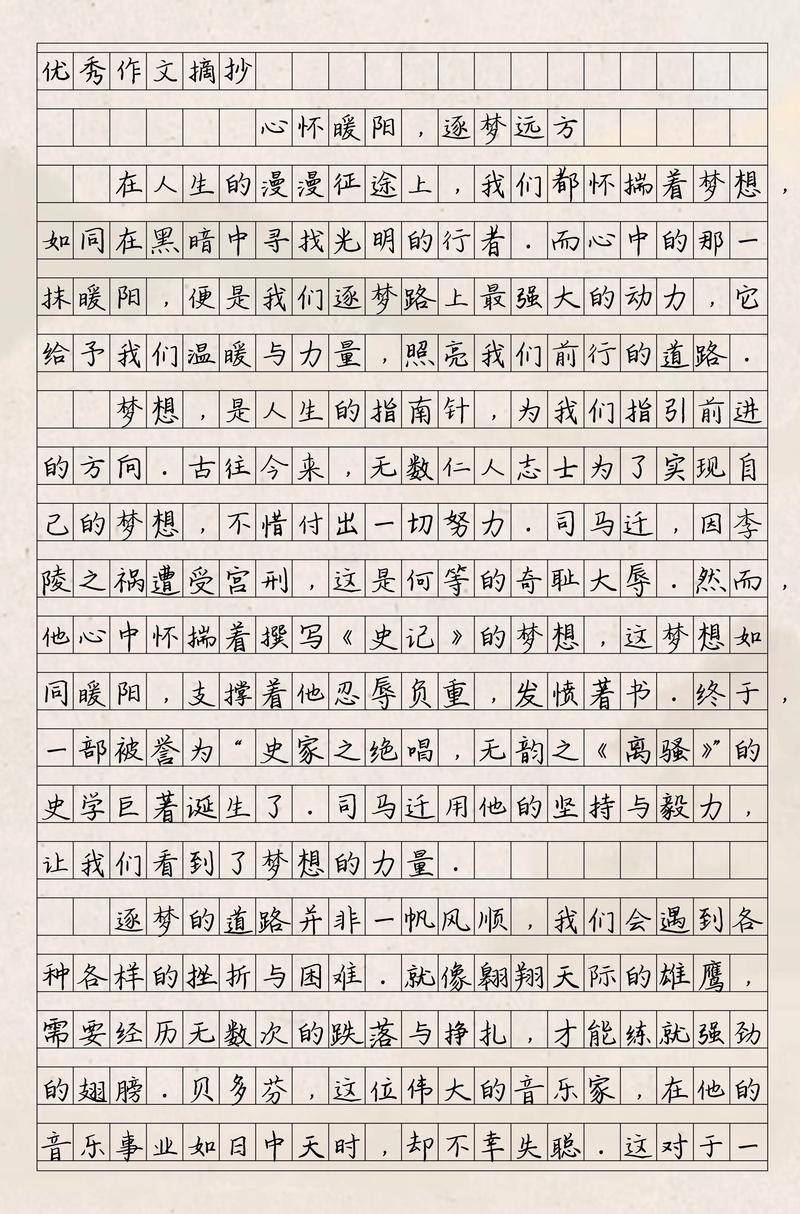 优秀作文摘抄
心怀暖阳，逐梦远方
在人生的漫漫征途上，我们都怀揣着梦想，
如同在黑暗中寻找光明的行者．而心中的那一
抹暖阳，便是我们逐梦路上最强大的动力，它
给予我们温暖与力量，照亮我们前行的道路．
梦想，是人生的指南针，为我们指引前进
的方向．古往今来，无数仁人志士为了实现自
己的梦想，不惜付出一切努力．司马迁，因李
陵之祸遭受宫刑，这是何等的奇耻大辱．然而，
他心中怀揣着撰写《史记》的梦想，这梦想如
同暖阳，支撑着他忍辱负重，发愤著书．终于，
一部被誉为“史家之绝唱，无韵之《离骚》”的
史学巨著诞生了．司马迁用他的坚持与毅力，
让我们看到了梦想的力量．
逐梦的道路并非一帆风顺，我们会遇到各
种各样的挫折与困难．就像翱翔天际的雄鹰，
需要经历无数次的跌落与挣扎，才能练就强劲
的翅膀．贝多芬，这位伟大的音乐家，在他的
音乐事业如日中天时，却不幸失聪．这对于一